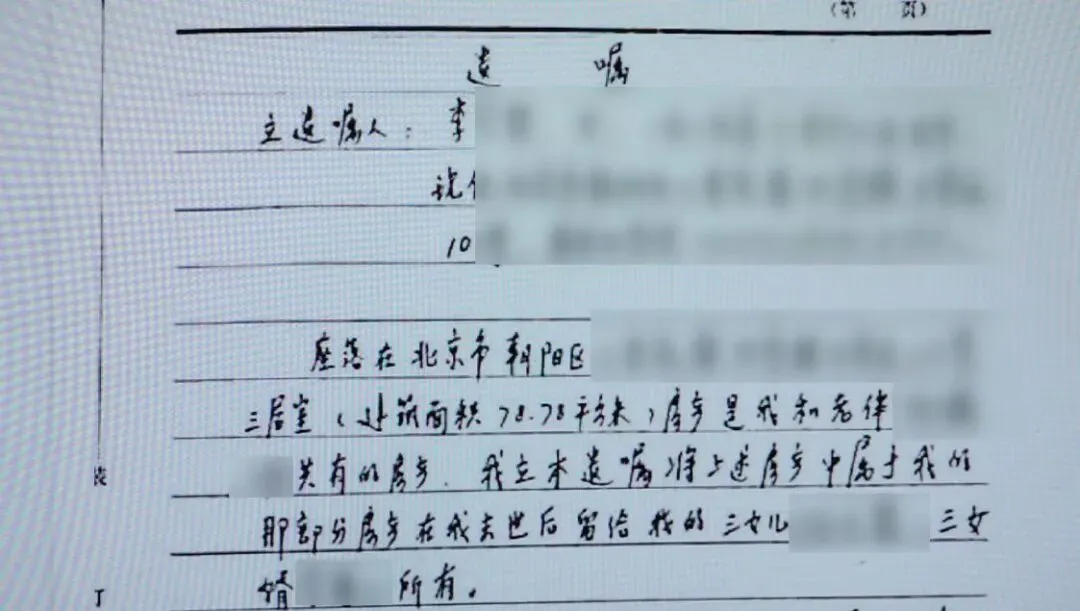 （第 页）
遗 嘱
立遗嘱人：李
10
座落在北京市朝阳区
三居室（建筑面积78.78平方米）房产是我和老伴
共有的房产．我立本遗嘱，将上述房产中属于我的
那部分房产在我去世后留给我的三女儿 三女
婿 所有。